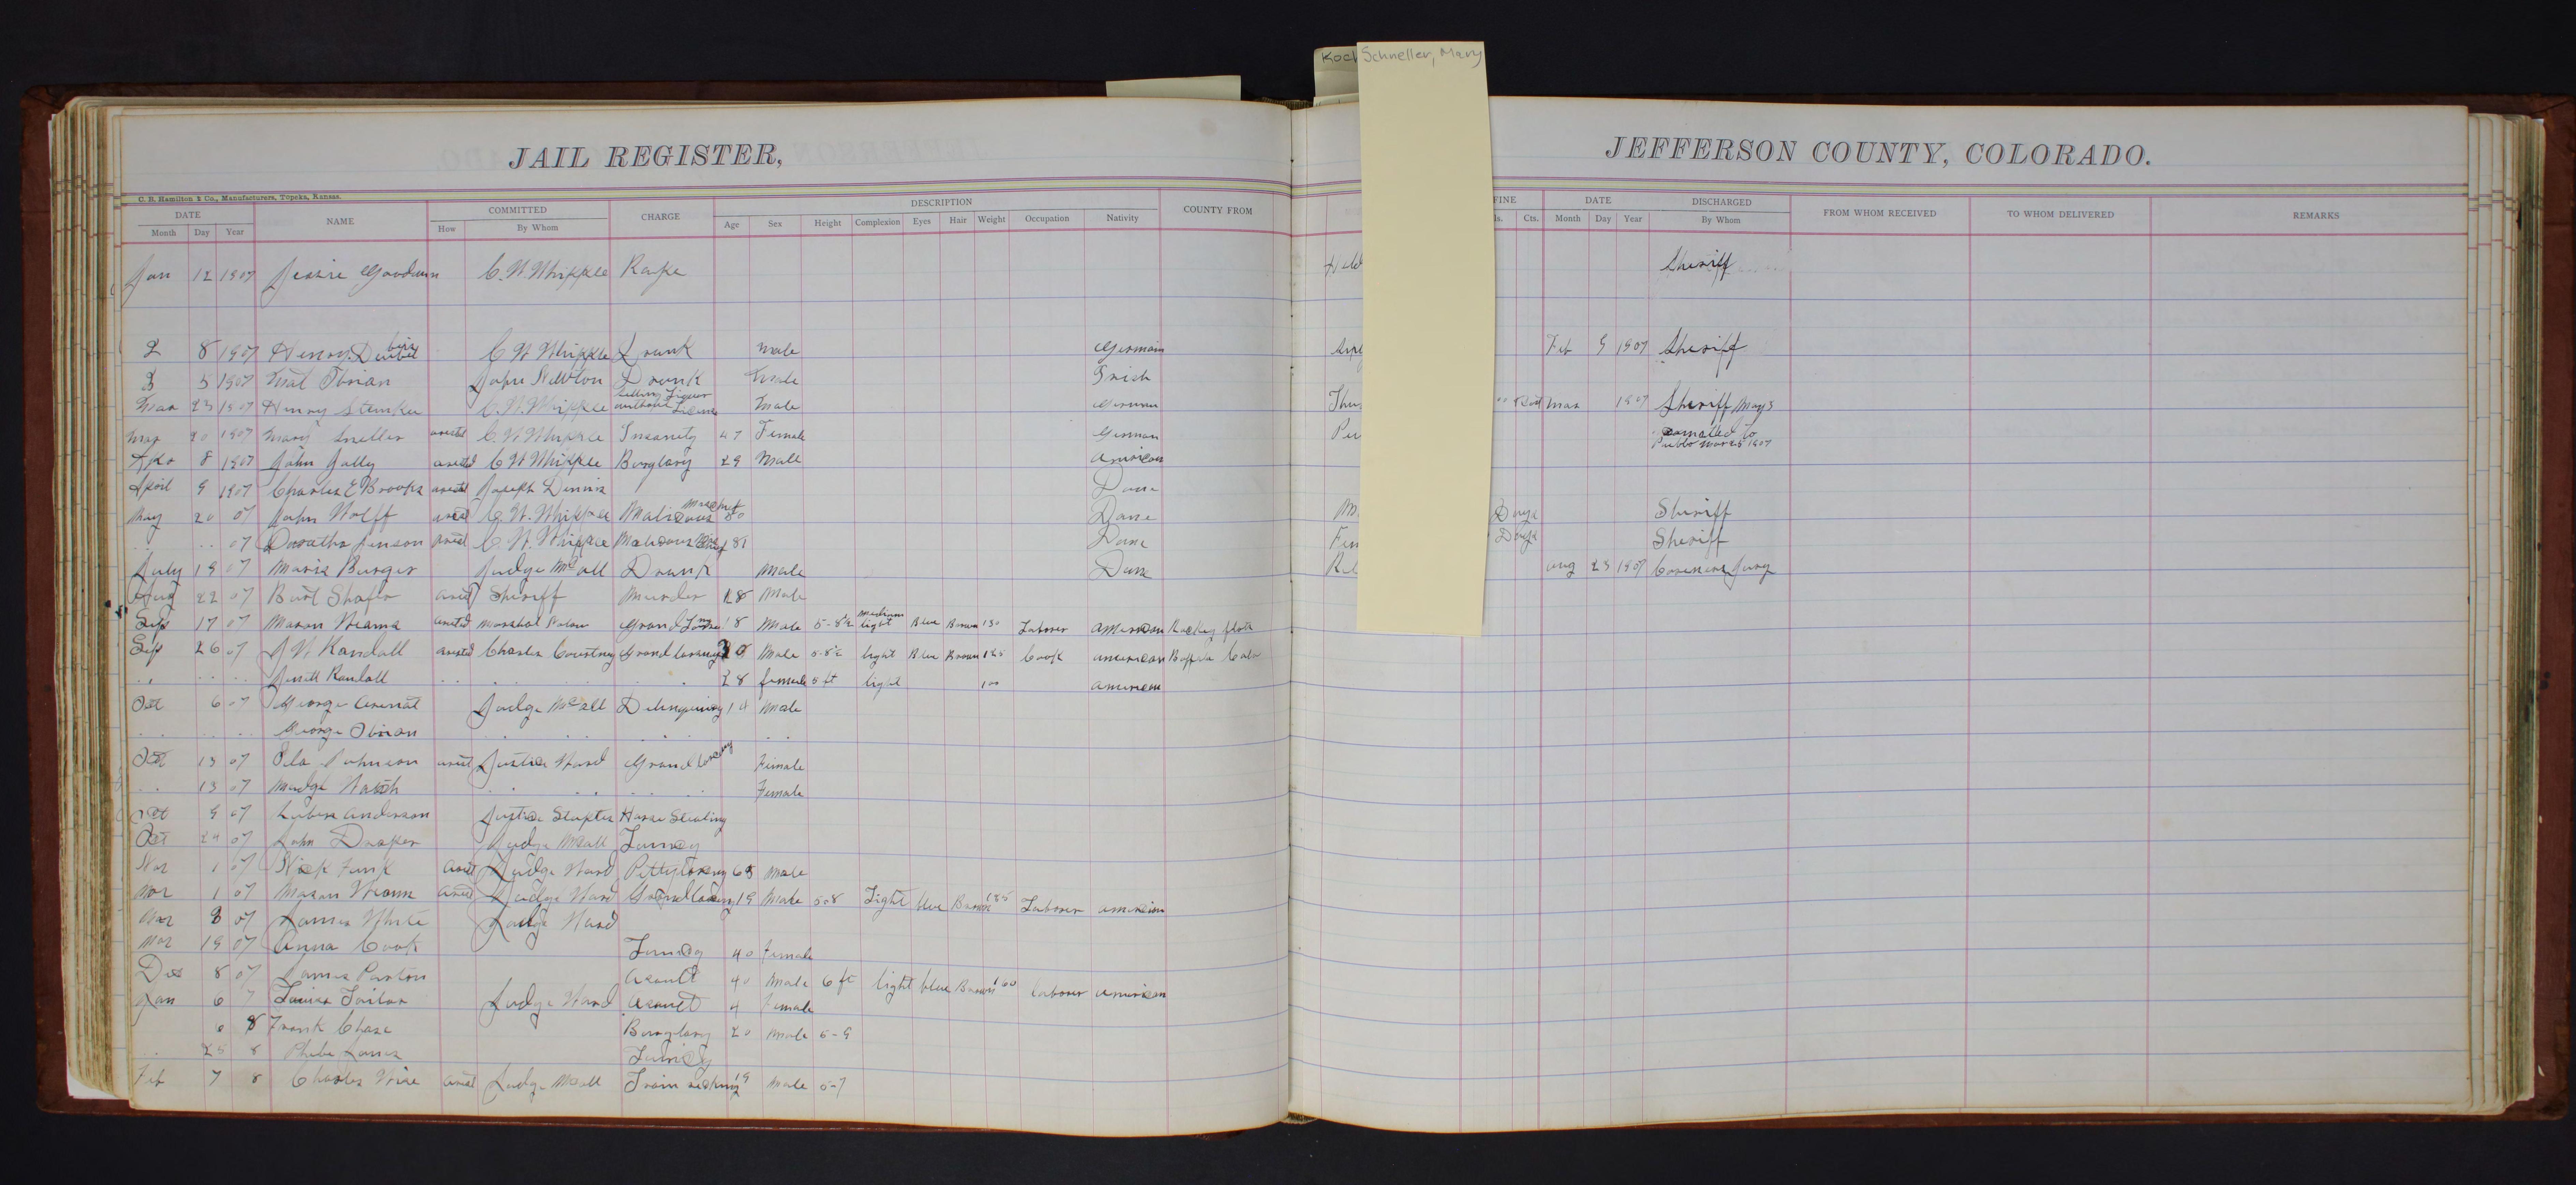 Koch
Schneller, Mary
JAIL REGISTER,
JEFFERSON COUNTY, COLORADO.
C. B. Hamilton & Co., Manufacturers, Topeka, Kansas.
DATE NAME COMMITTED CHARGE DESCRIPTION COUNTY FROM FINE DATE DISCHARGED FROM WHOM RECEIVED TO WHOM DELIVERED REMARKS
Month Day Year How By Whom Age Sex Height Complexion Eyes Hair Weight Occupation Nativity Cts. Month Day Year By Whom
Jan 12 1907 Jessie Goodwin C. W. Whipple Rape Held Sheriff
2 8 1907 Henry C W Whipple Drunk male German Feb 9 1907 Sheriff
5 1907 Mat Obrian John Newton Drunk Male Irish
Mar 23 1907 Henry Stemke C. W. Whipple Selling Liquor without License Male German Mar 1907 Sheriff Mays
Mar 20 1907 Mary Sneller arested C. W. Whipple Insanity 47 Female German Pueblo Mar 25 1907
Apr 8 1907 John Jolly arested C W Whipple Burglary 29 Male American
April 9 1907 Charles E Brooks arested Joseph Dennis Dane
May 20 07 John Wolff arest C. W. Whipple Dane Days Sheriff
.. .. 07 Doratha Jenson arest C. W. Whipple 81 Dane Days Sheriff
July 19 07 Maris Burger Judge McCall Drunk Male Dane Aug 23 1907
Aug 22 07 Bert Shafer arest Sheriff Murder 28 Male
Sep 17 07 Mason Marshal Grand 18 Male 5-8½ medium light Blue Brown 130 Laborer American
Sep 26 07 J W Randall arested Charles Courtney Grand Larceny 30 Male 5-8½ light Blue Brown 135 Cook American Colo
.. .. .. Randall .. 28 female 5 ft light 100 American
Oct 6 07 George Judge McCall 14 Male
.. .. .. George Obrian
Oct 13 07 Johnson arest Justice Ward Grand Larceny Female
.. 13 07 Madge Female
Oct 9 07 Anderson Justice Horse Stealing
Oct 29 07 John Judge McCall
Nov 1 07 Nick Funk arest Judge Ward 65 Male
Nov 1 07 Mason arest Judge Ward Grand 19 Male 5-8 Light blue Brown 135 Laborer American
Nov 8 07 James White Judge Ward
Nov 19 07 Anna Cook 40 Female
Dec 8 07 James Parton Asault 40 Male 6 ft light blue Brown 160 laborer American
Jan 6 7 Judge Ward Asault 4 Female
6 8 Frank Chase Burglary 20 Male 5-9
.. 25 8 Phebe
Feb 7 8 Charles Wise arest Judge McCall Train 19 Male 5-7